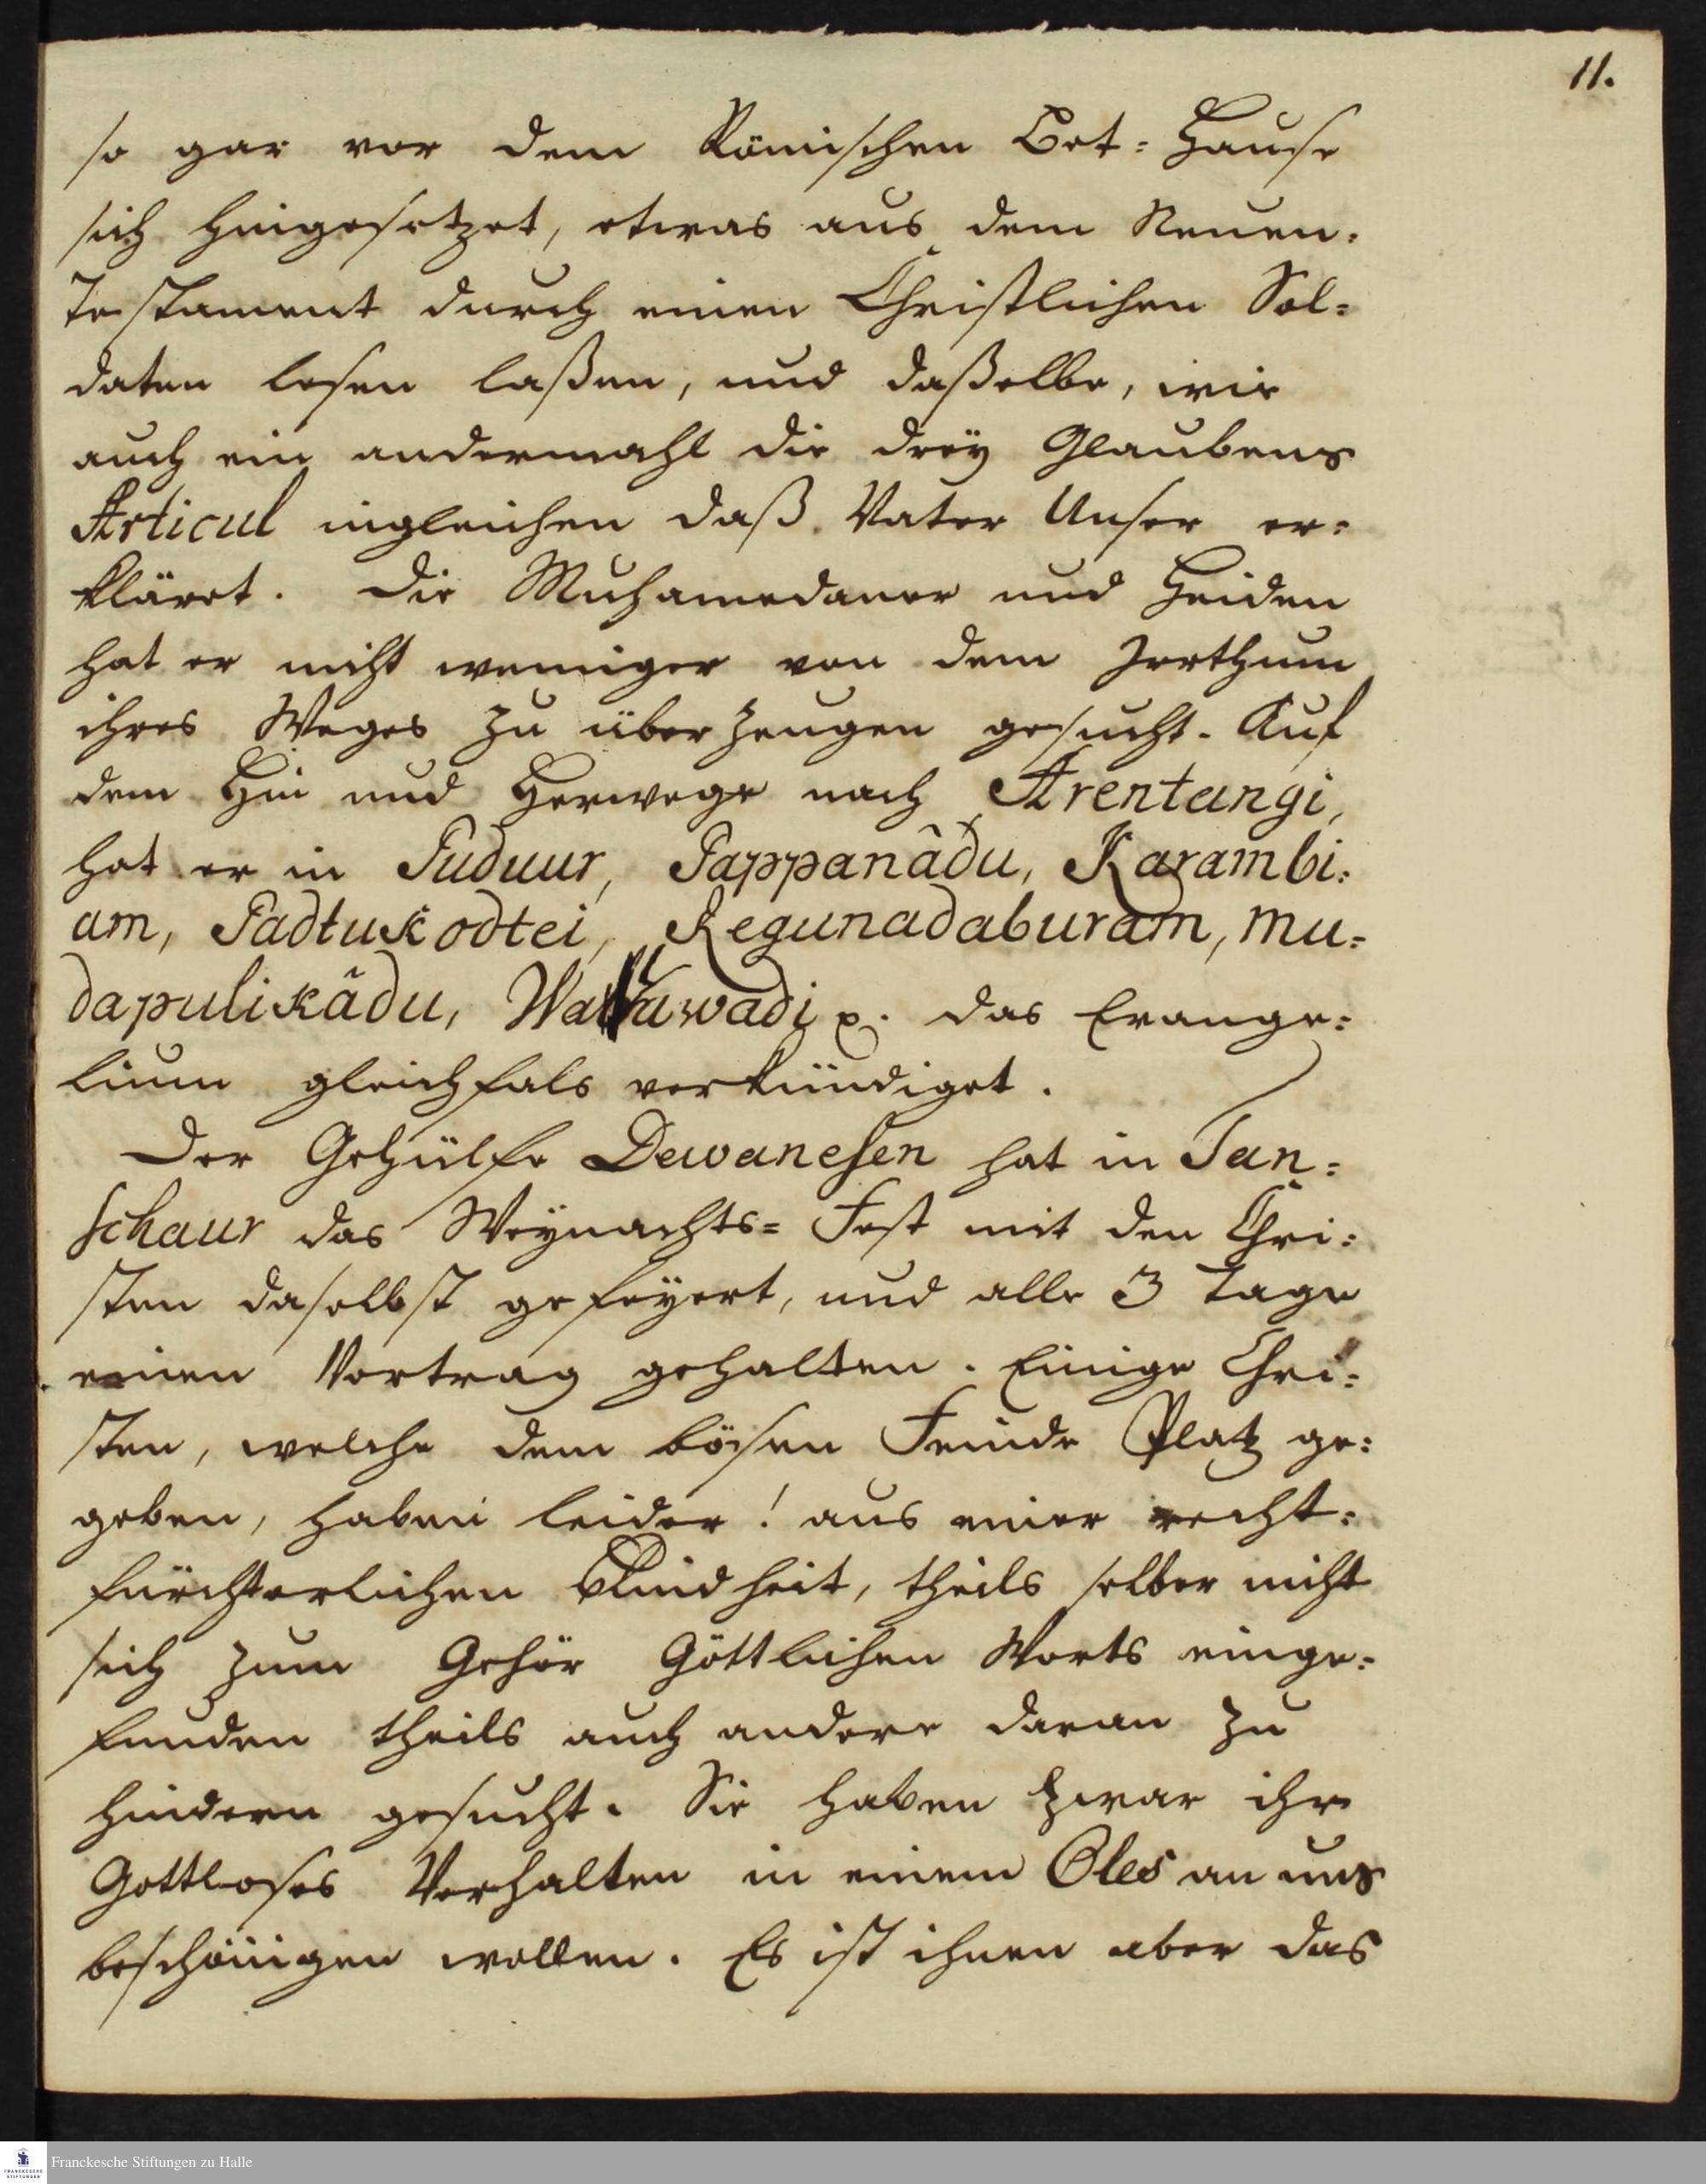 11.
so gar vor dem Römischen Bet-Hause
sich hingesetzet, etwas aus dem Neuen-
Testament durch einen Christlichen Sol-
daten lesen laßen, und daßelbe, wie
auch ein andermahl die drey Glaubens
Articul ingleichen daß Vater Unser er-
kläret. Die Muhamedaner und Heiden
hat er nicht weniger von dem Irrthum
ihres Weges zu überzeugen gesucht. Auf
dem Hin und Herwege nach Arentangi,
hat er in Puduur, Pappanâdu, Karambi-
am, Padtukodtei, Regunadaburam, Mu-
dapulikâdu, das Evange-
lium gleichfals verkündiget.
Der Gehülfe Dewanesen hat in Tan-
schaur das Weynachts-Fest mit den Chri-
sten daselbst gefeyert, und alle 3 Tage
einen Vortrag gehalten. Einige Chri-
sten, welche dem bösen Feinde Platz ge-
geben, haben leider! aus einer recht-
fürchterlichen Blindheit, theils selber nicht
sich zum Gehör Göttlichen Worts einge-
funden theils auch andere daran zu
hindern gesucht. Sie haben zwar ihr
Gottloses Verhalten in einem Oles an uns
beschönigen wollen. Es ist ihnen aber das
Franckesche Stiftungen zu Halle